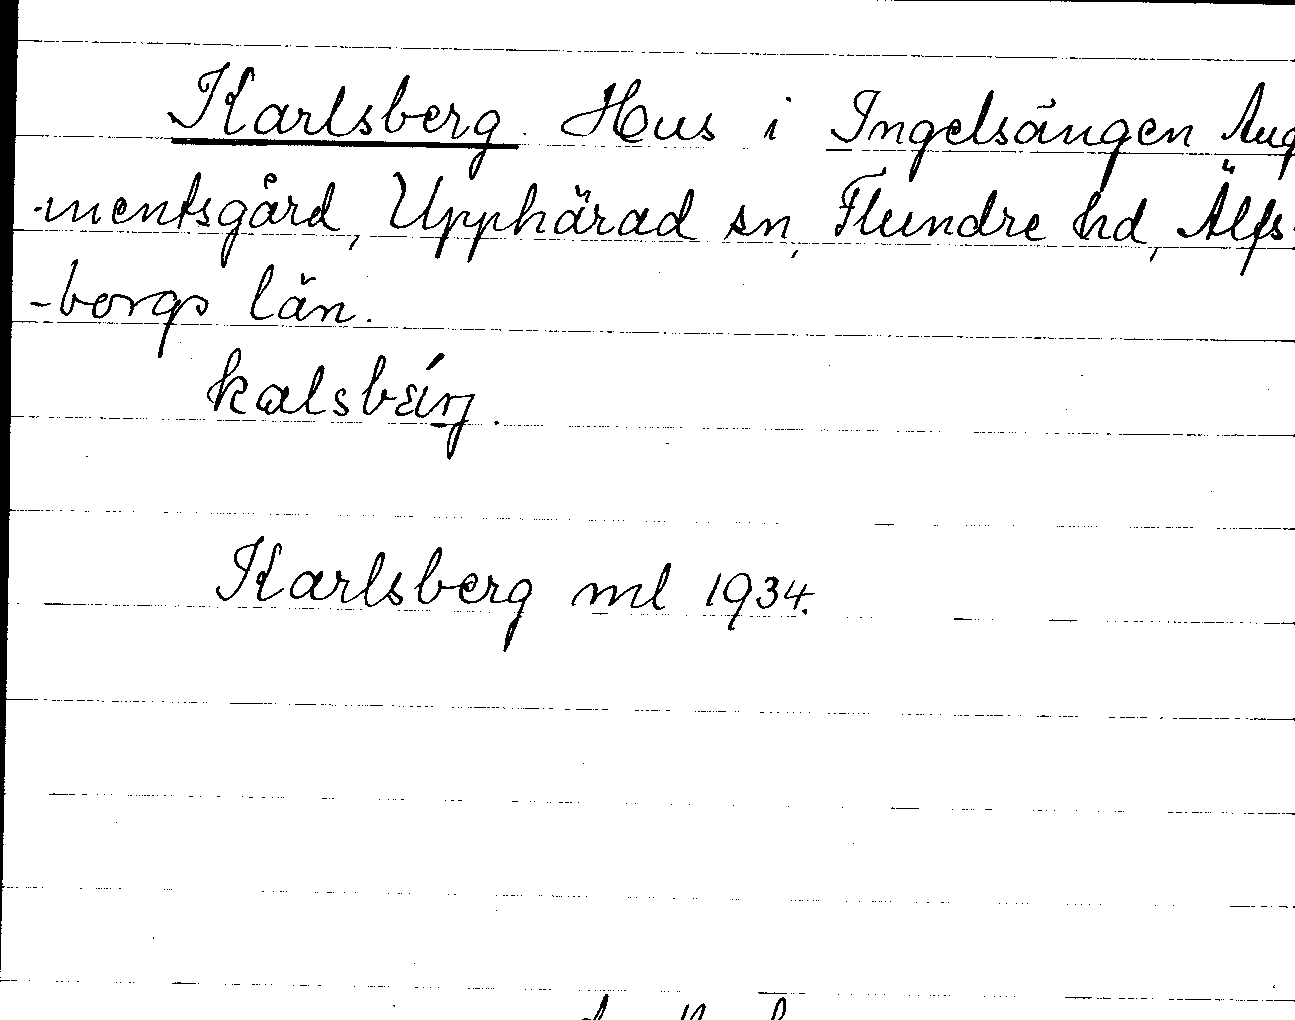 Karlsberg. Hus i Ingelsängen Aug
-mentsgård, Upphärad sn, Flundre hd, Älfs-
-borgs län.
Karlsberg ml 1934.